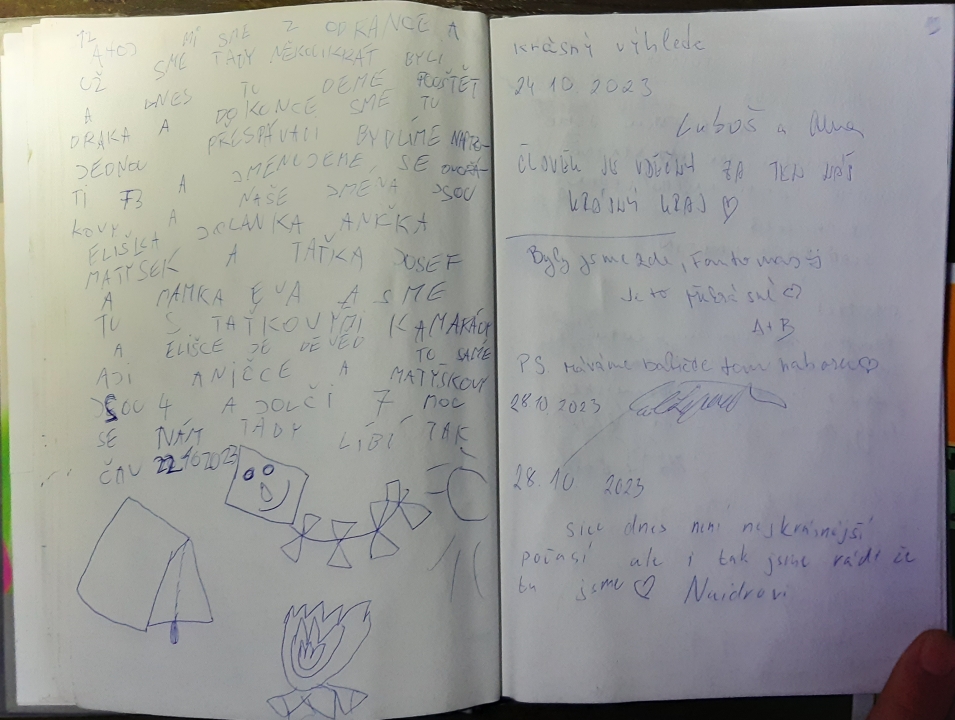 AHOJ MI SME Z ODRANCE A
UŽ SME TADY NĚKOLIKRÁT BYLI
A DNES TU DEME POUŠTĚT
DRAKA A DOKONCE SME TU
JEDNOU PŘESPÁVALI BYDLÍME NAPRO-
TI 73 A JMENUJEME SE
KOVY A NAŠE JMÉNA JSOU
ELIŠKA JOLANKA ANIČKA
MATÝSEK A TAŤKA JOSEF
A MAMKA EVA A SME
TU S TAŤKOVÝMI KAMARÁDY
A ELIŠCE JE DEVĚD TO SAMÉ
AJI ANIČCE A MATÝSKOVY
JSOU 4 A JOLČI 7 MOC
SE NÁM TADY LÍBÍ TAK
ČAU 22 10 2023
krásný výhlede
24.10.2023
Luboš a
ČLOVĚK JE VDĚČNÝ ZA TEN NÁŠ
KRÁSNÝ KRAJ ♡
Byly jsme zde,
Je to ♡
A+B
PS Máváme tam nahoru ♡
28.10.2023
28.10 2023
Sice dnes není nejkrásnější
počasí ale i tak jsme rádi že
tu jsme ♡